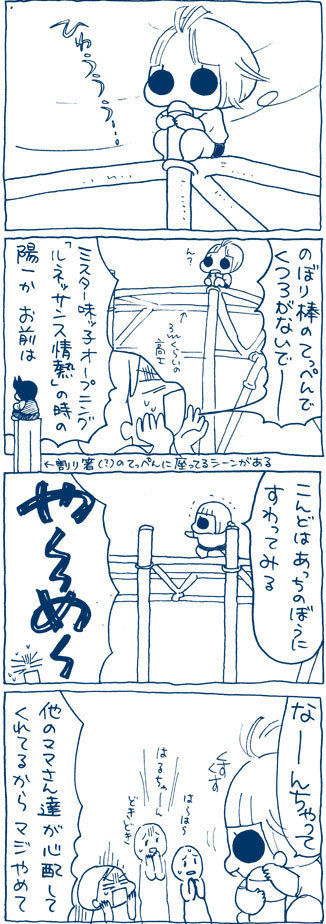 ひゅうううう…
のぼり棒のてっぺんで
くつろがないでー
ん?
3mくらいの
高さ
ミスター味っ子オープニング
「ルネッサンス情熱」の時の
陽一か お前は
←割り箸(?)のてっぺんに座ってるシーンがある
こんどはあっちのぼうに
すわってみる
や〜め〜
なーんちゃって
くすくす
はるちゃーん
はらはら
どきどき
他のママさん達が心配して
くれてるから マジやめて